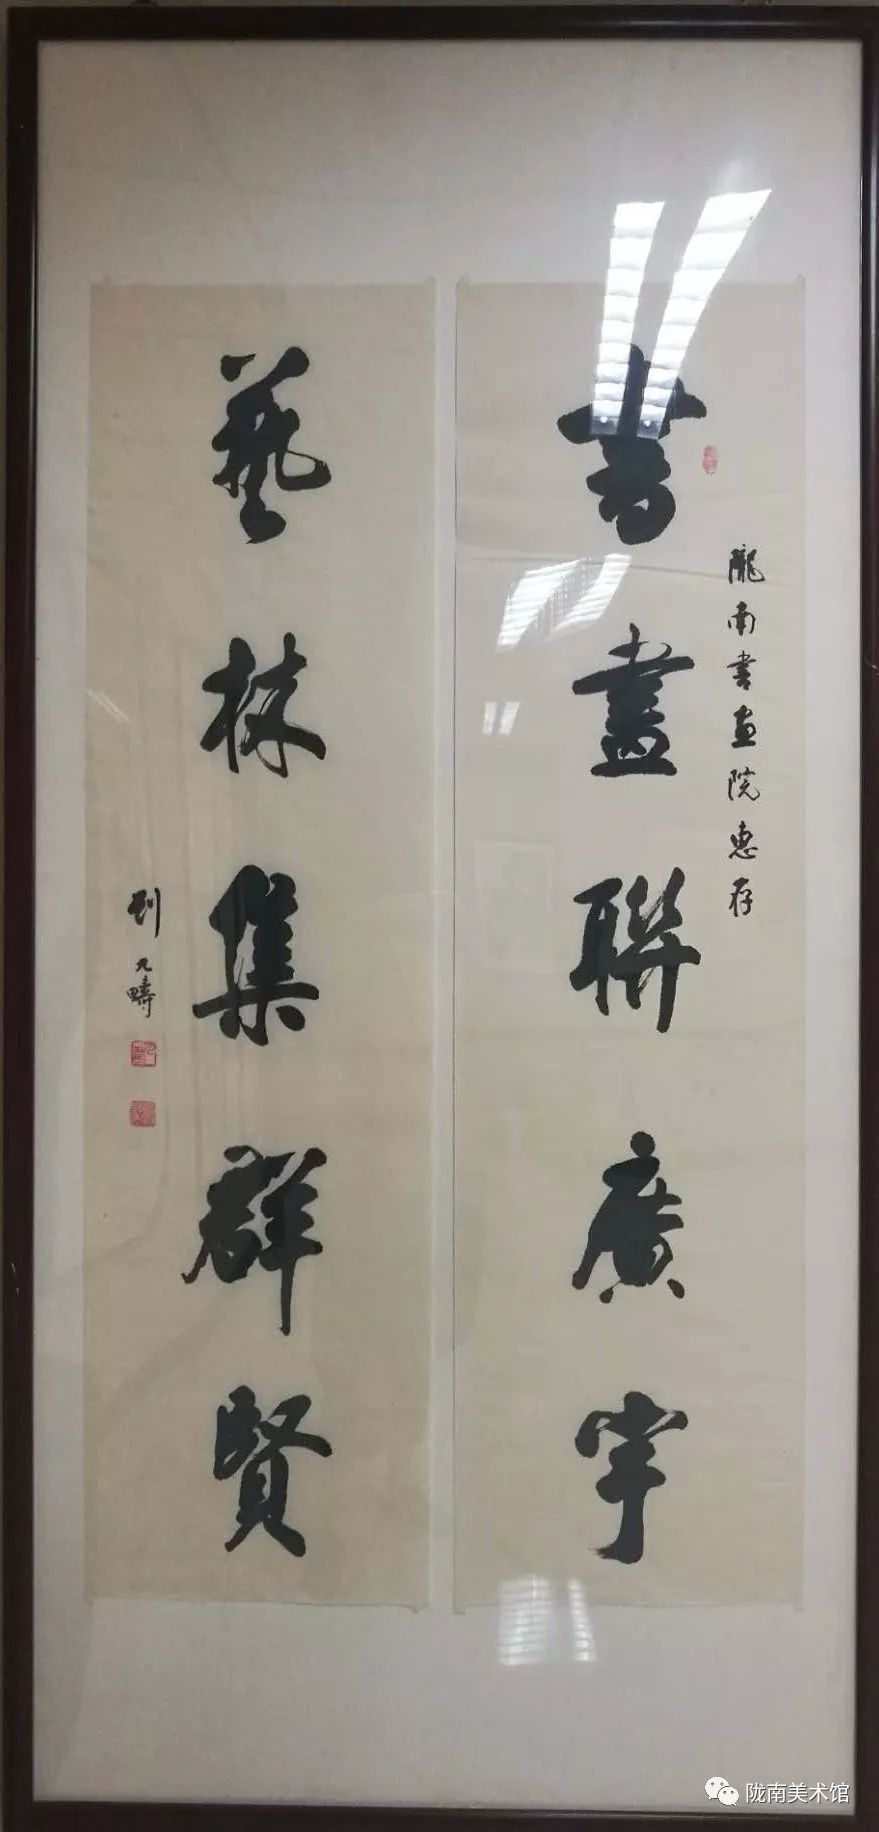 書畫聯廣宇
隴南書画院惠存
藝林集群賢
刘九疇
陇南美术馆